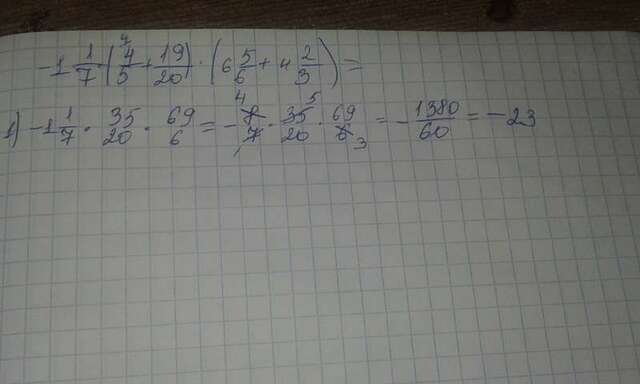 -1 1/7 · (4/5 + 19/20) · (6 5/6 + 4 2/3) =
1) -1 1/7 · 35/20 · 69/6 = - 8/7 · 35/20 · 69/6 = - 1380/60 = - 23